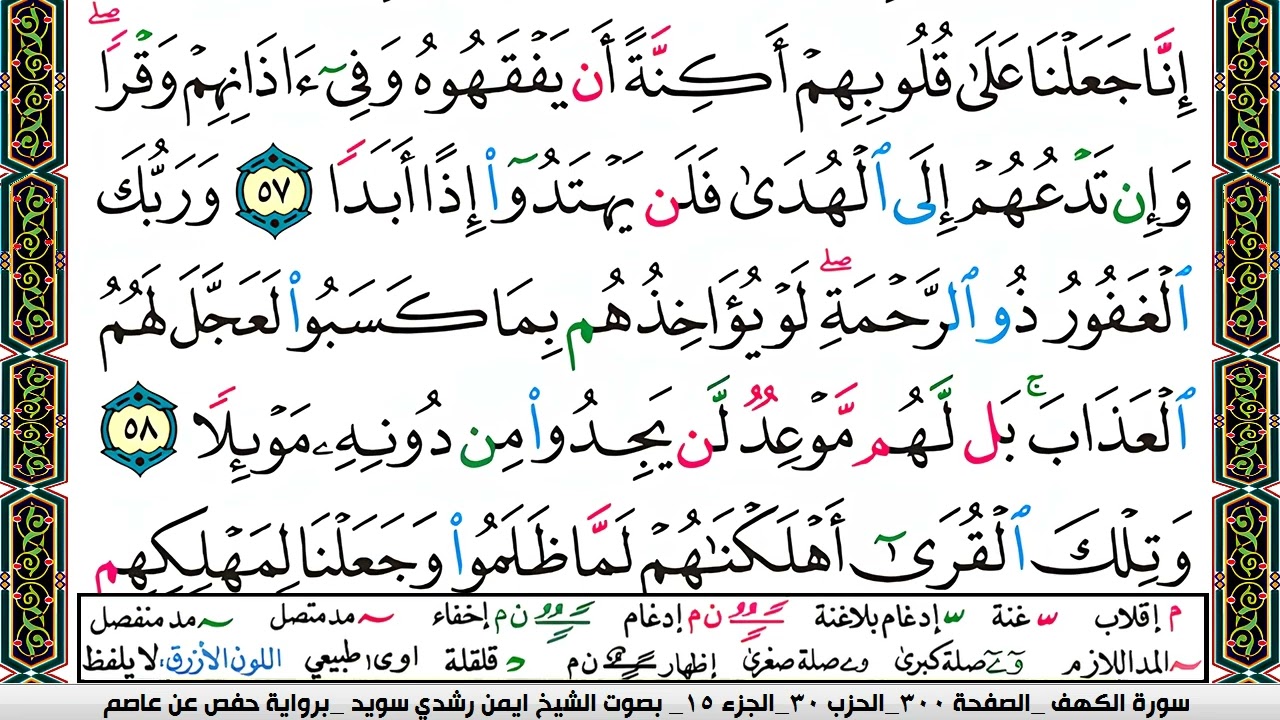 إِنَّا جَعَلْنَا عَلَىٰ قُلُوبِهِمْ أَكِنَّةً أَن يَفْقَهُوهُ وَفِىٓ ءَاذَانِهِمْ وَقْرًا ۖ
وَإِن تَدْعُهُمْ إِلَى ٱلْهُدَىٰ فَلَن يَهْتَدُوٓا۟ إِذًا أَبَدًا ٥٧ وَرَبُّكَ
ٱلْغَفُورُ ذُو ٱلرَّحْمَةِ ۖ لَوْ يُؤَاخِذُهُم بِمَا كَسَبُوا۟ لَعَجَّلَ لَهُمُ
ٱلْعَذَابَ ۚ بَل لَّهُم مَّوْعِدٌ لَّن يَجِدُوا۟ مِن دُونِهِۦ مَوْئِلًا ٥٨
وَتِلْكَ ٱلْقُرَىٰٓ أَهْلَكْنَـٰهُمْ لَمَّا ظَلَمُوا۟ وَجَعَلْنَا لِمَهْلِكِهِم
م إقلاب غنة إدغام بلاغنة ن م إدغام ن م إخفاء مد متصل مد منفصل
المد اللازم و ے صلة كبرى و ے صلة صغرى إظهار ن م قلقلة اوى طبيعي اللون الأزرق، لا يلفظ
سورة الكهف _الصفحة ٣٠٠_الحزب ٣٠_الجزء ١٥_ بصوت الشيخ ايمن رشدي سويد _برواية حفص عن عاصم